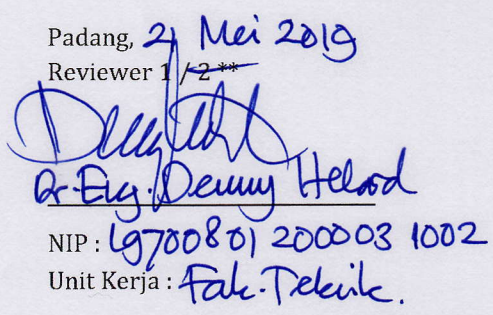 Padang, 21 Mei 2019
Reviewer 1 / 2 **
Dr. Eng. Denny Helard
NIP : 19700801 200003 1002
Unit Kerja : Fak. Teknik.